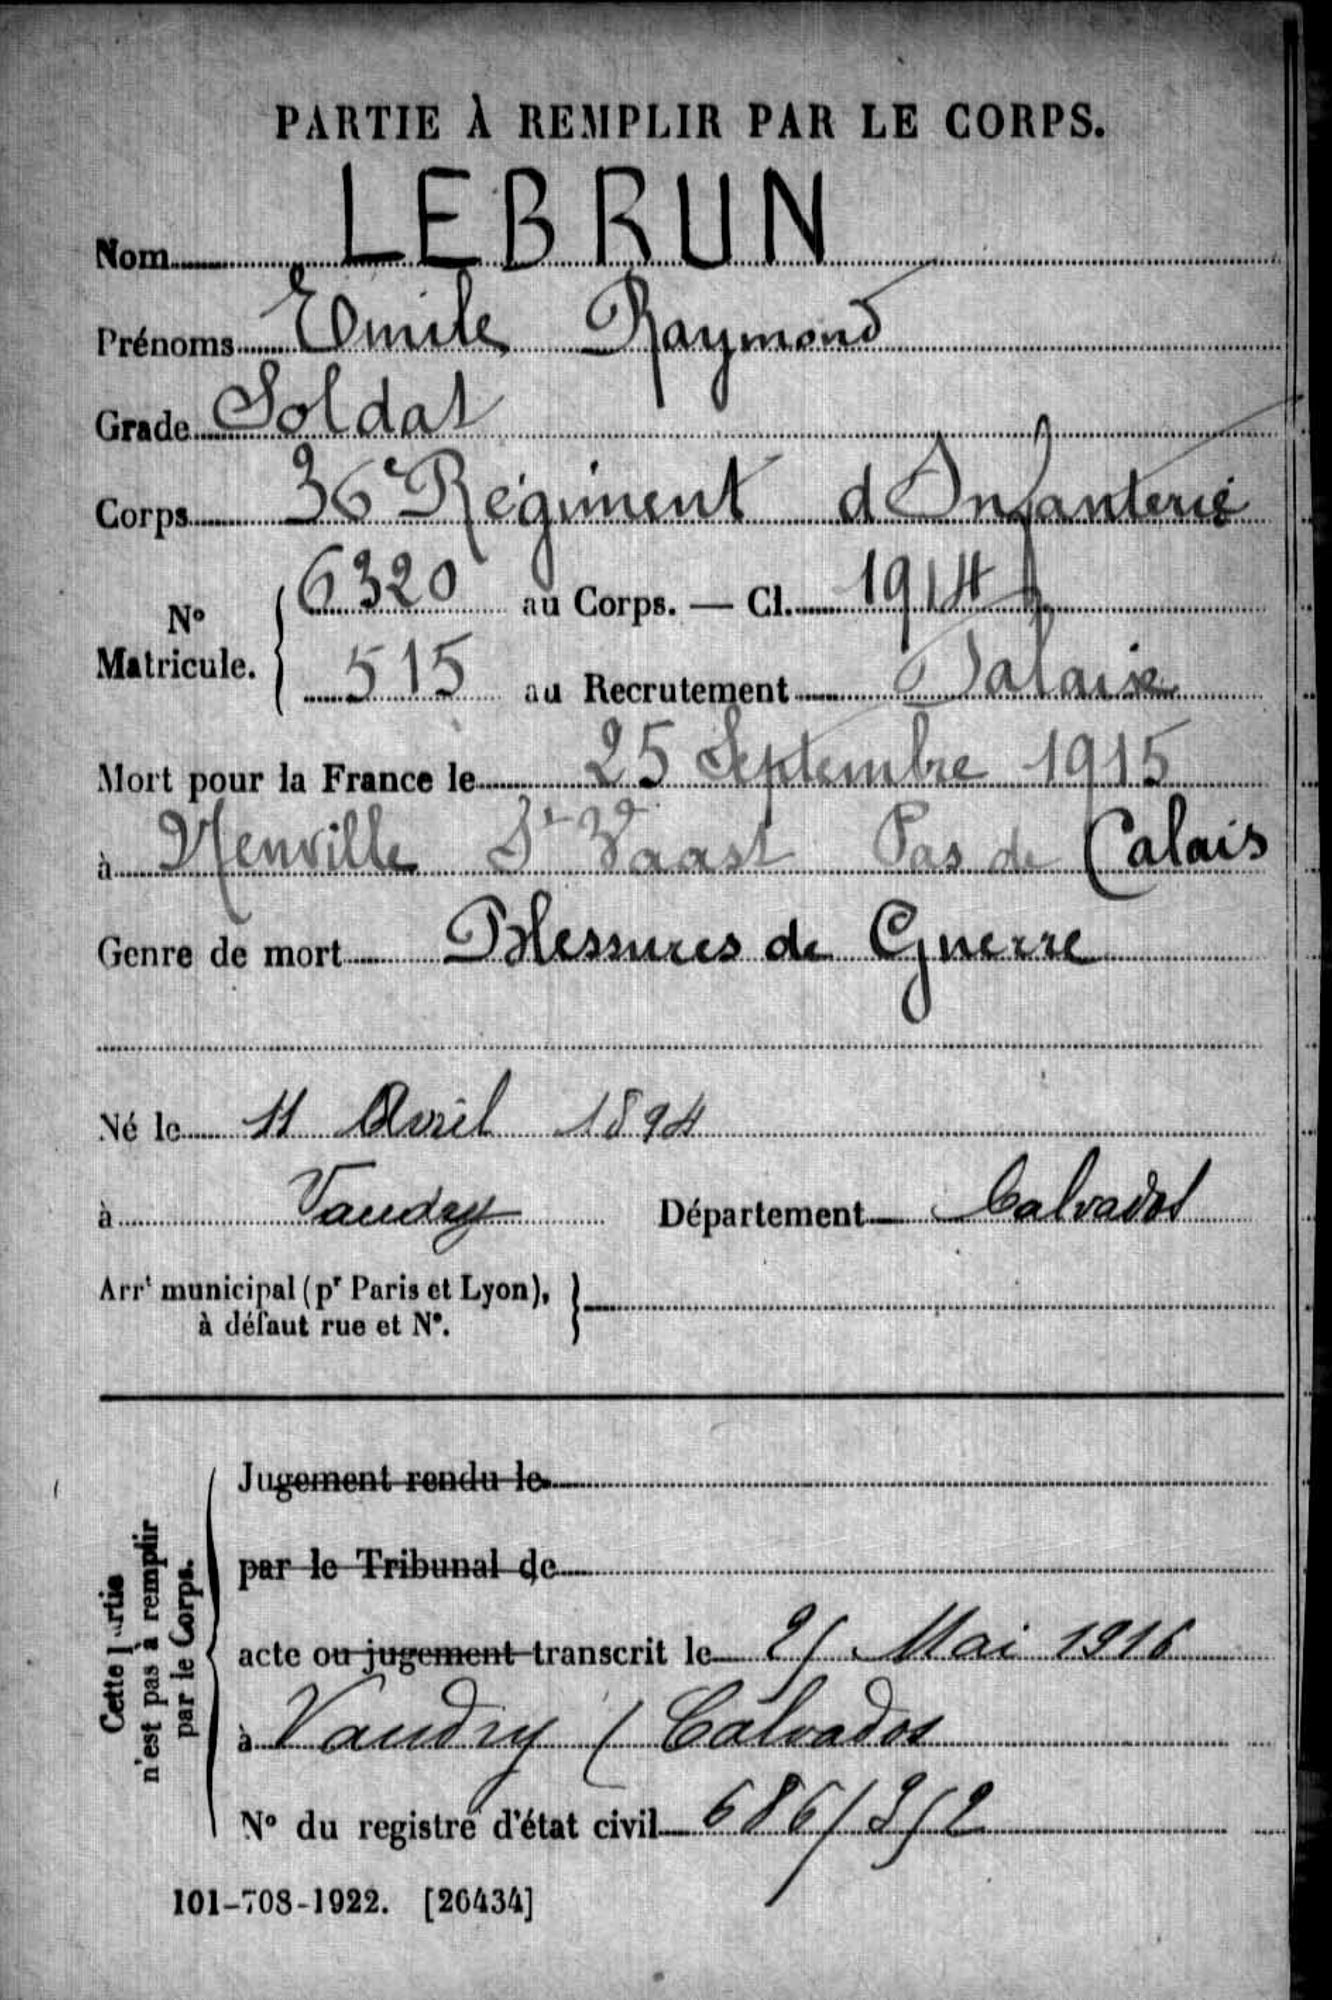 PARTIE À REMPLIR PAR LE CORPS.
Nom LEBRUN
Prénoms Emile Raymond
Grade Soldat
Corps 36e Régiment d Infanterie
No Matricule. { 6320 au Corps. — Cl. 1914
515 au Recrutement Falaise
Mort pour la France le 25 Septembre 1915
à Neuville St Vaast Pas de Calais
Genre de mort Blessures de Guerre
Né le 11 Avril 1894
à Vaudry Département Calvados
Arrt municipal (pr Paris et Lyon), }
à défaut rue et N°.
Cette partie
n'est pas à remplir
par le Corps.
Jugement rendu le
par le Tribunal de
acte ou jugement transcrit le Mai 1916
à Vaudry ( Calvados
N° du registre d'état civil
101-708-1922. [26434]